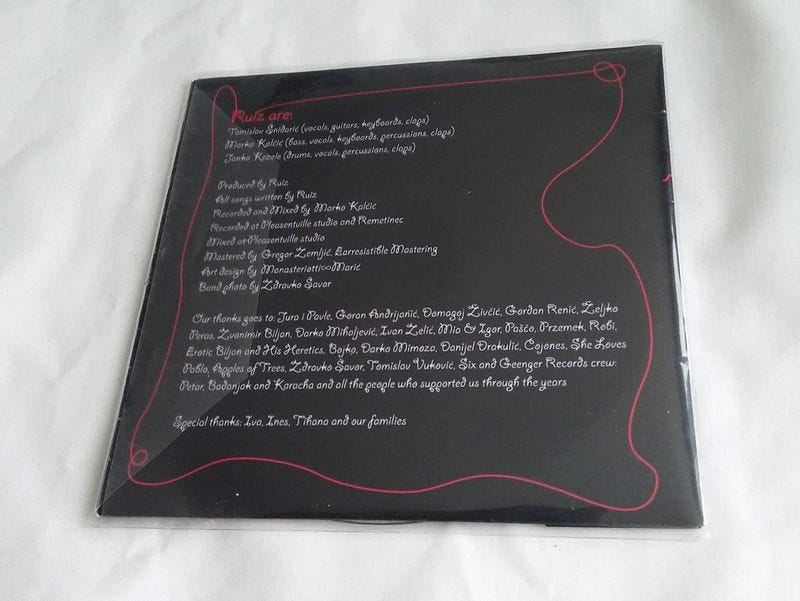 Ruiz are:
Tomislav Šnidarić (vocals, guitars, keyboards, claps)
Marko Kalčić (bass, vocals, keyboards, percussions, claps)
Janko Kezele (drums, vocals, percussions, claps)
Produced by Ruiz
All songs written by Ruiz
Recorded and Mixed by Marko Kalčić
Recorded at Pleasentville studio and Remetinec
Mixed at Pleasentville studio
Mastered by Gregor Zemljič, Earresistible Mastering
Art design by Monasteriotti∞Marić
Band photo by Zdravko Savor
Our thanks goes to: Jura i Pavle, Goran Andrijanić, Domagoj Živčić, Gordan Renić, Željko
Peras, Zvonimir Biljan, Darko Mihaljević, Ivan Zelić, Mia & Igor, Pašćo, Przemek, Robi,
Erotic Biljan and His Heretics, Bojko, Darko Mimoza, Danijel Drakulić, Cojones, She Loves
Pablo, Apples of Trees, Zdravko Savor, Tomislav Vuković, Six and Geenger Records crew:
Petar, Badanjak and Karacha and all the people who supported us through the years
Special thanks: Iva, Ines, Tihana and our families